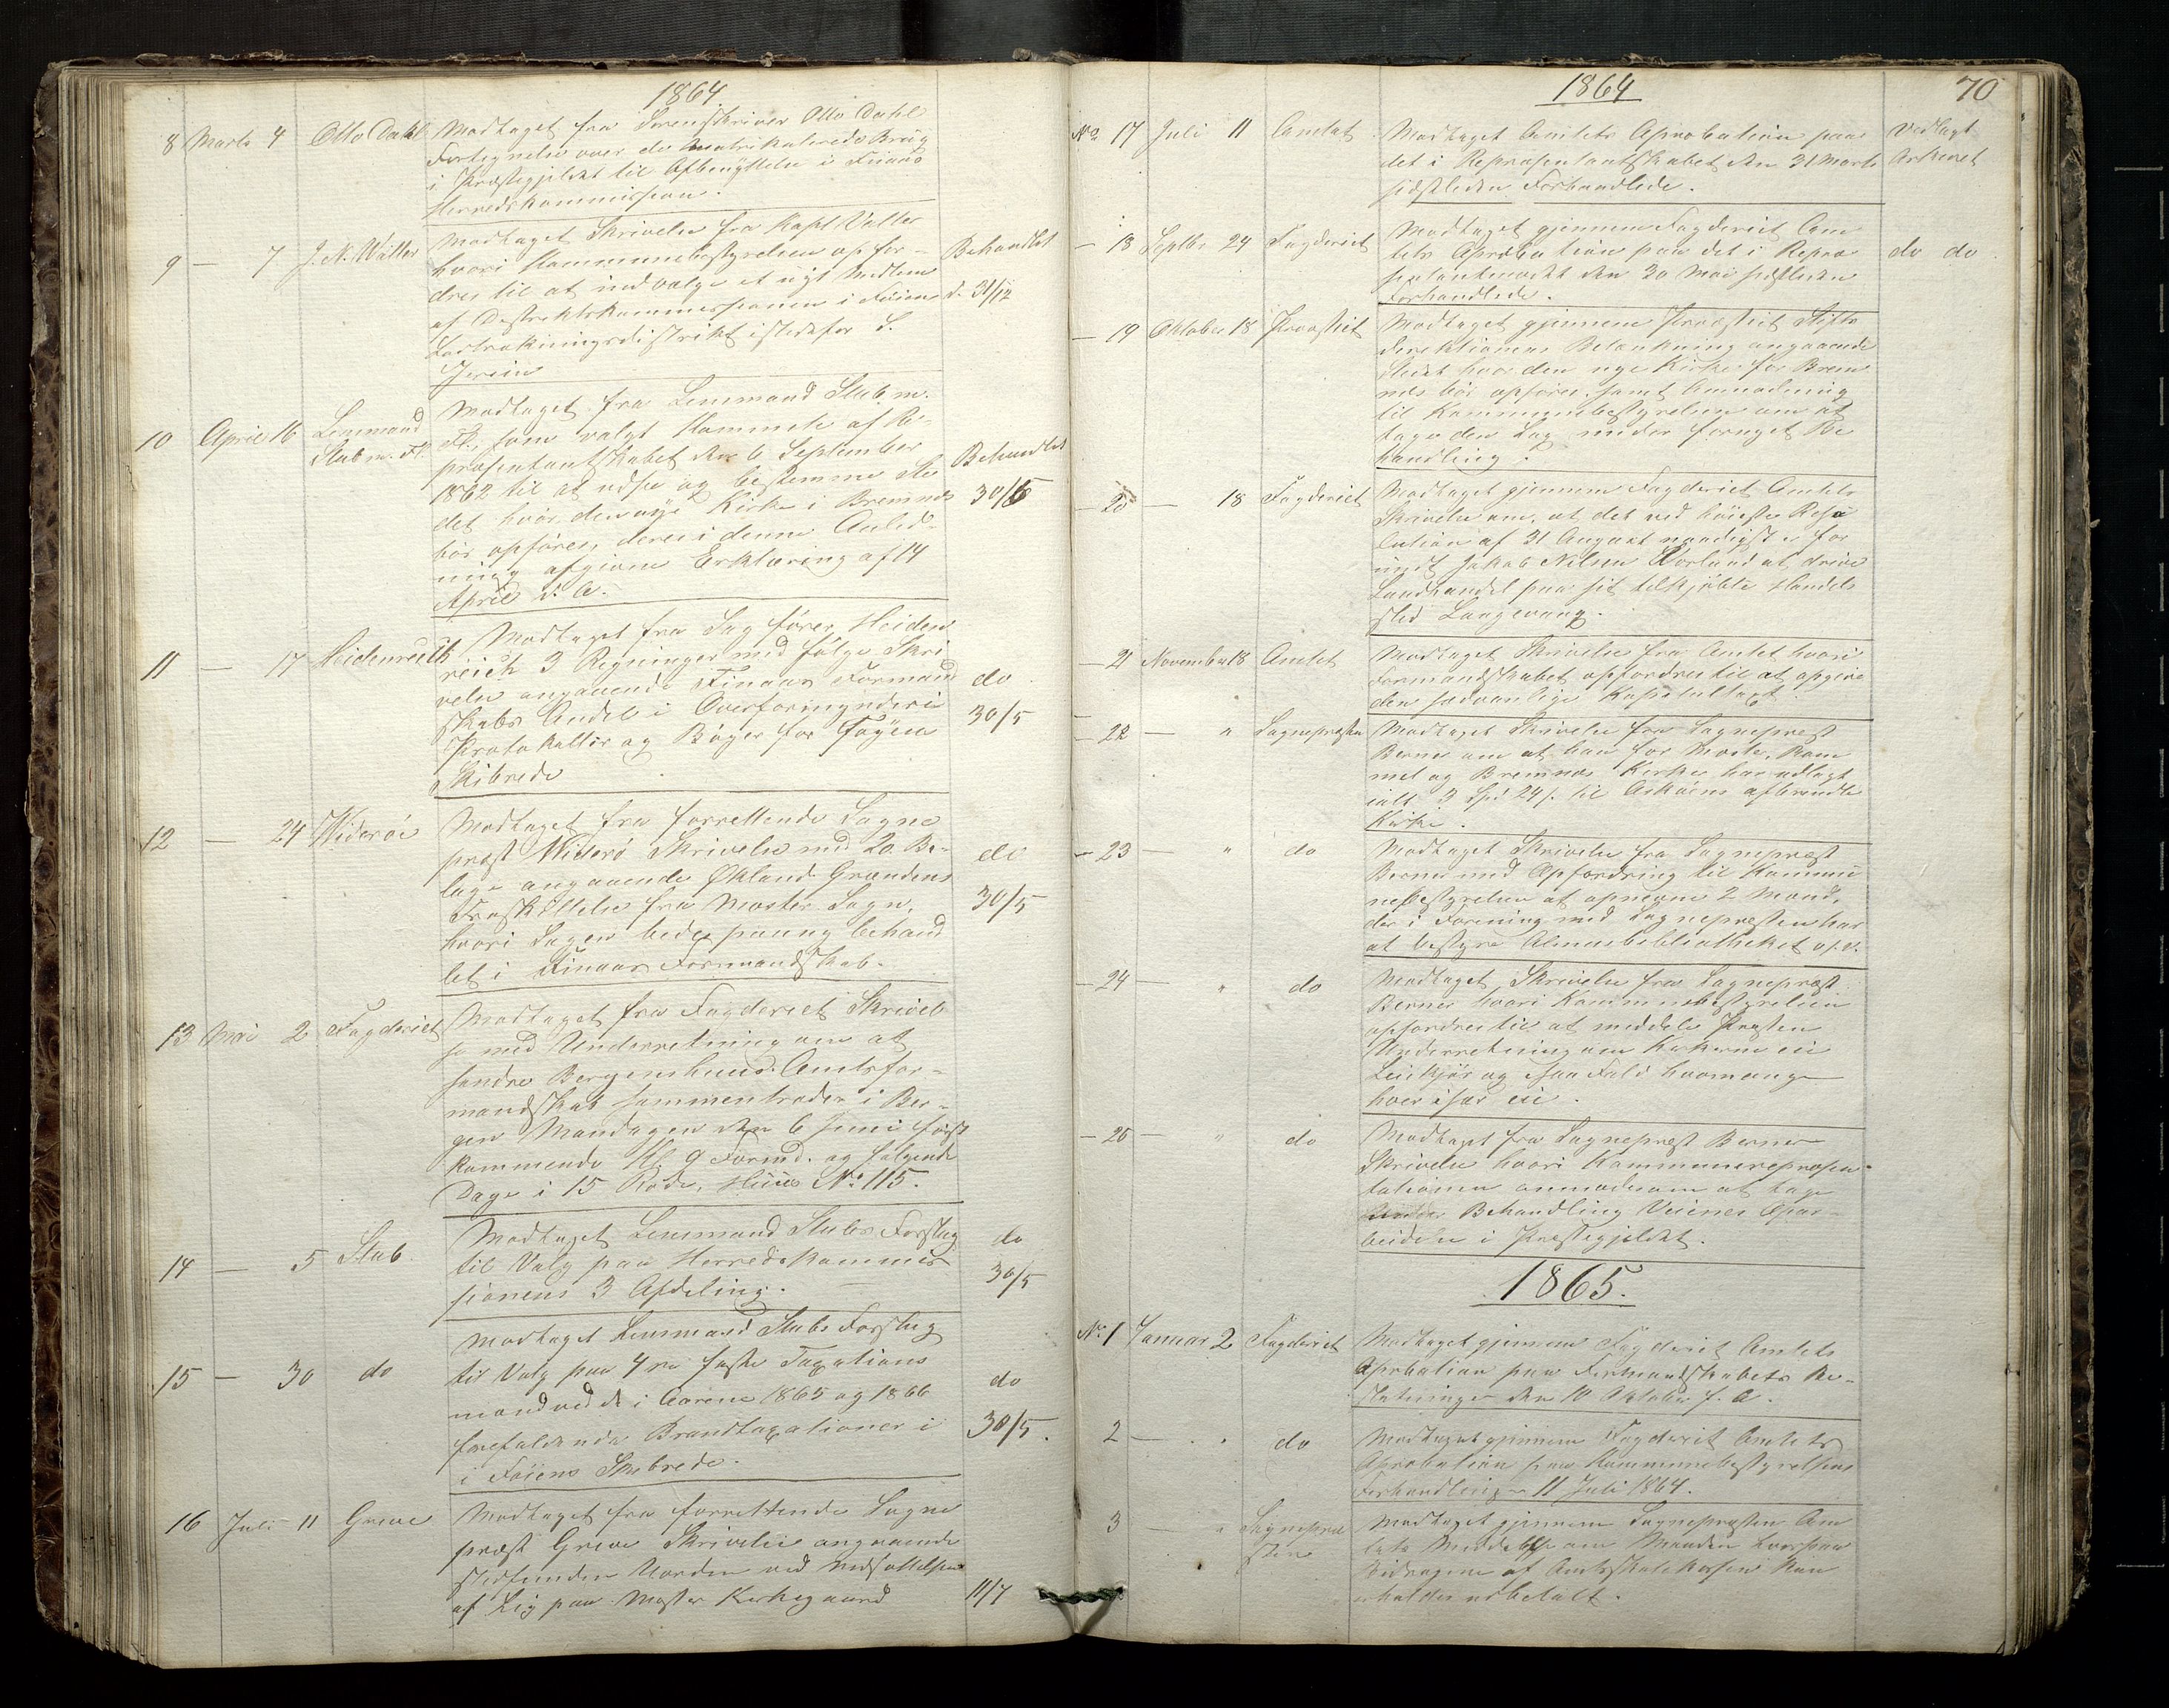 1864
8 Marts 4 Otto Dahl Modtaget fra Sorenskriver Otto Dahl
Fortegnelse over de matrikulerede Brug
i Præstegjeldet til Afbenyttelse i Finaas
Herredskommission.
9 — 7 J. N. Walter Modtaget Skrivelse fra Kapt Valter
hvori Kommunebestyrelsen opfor- Behandlet
dres til at indvælge et nyt Medlem
af Destriktskommissionen i Föiens d. 31/12
Lastrækningsdistrikt istedetfor S.
10 April 16 Lensmand Modtaget fra Lensmand Stub m.
Stub m. Fl. Fl., som valgt Kommite af Re-
præsentantskabet den 6 September Behandlet
1862 til at udse og bestemme Ste
det hvor den nye Kirke i Bremnes 30/5
bör opföres, deres i denne Anled-
ning afgivne Erklæring af 14
April d. A.
11 — 17 Heidenreich Modtaget fra Sagförer Heiden
reich 3 Regninger med fölge Skri
velse angaaende Finaas Formand do
skabs Andel i Overformynderi 30/5
Protokoller og Böger for Föyen
Skibrede
12 — 24 Wideröe Modtaget fra forrettende Sogne
præst Widerö Skrivelse med 20 Bi- do
lage angaaende Økland Grændens
Fraskillelse fra Moster Sogn, 30/5
hvori Sagen bedes paany behand
let i Finaas Formandskab.
13 Mai 2 Fogderiet Modtaget fra Fogderiet Skrivel
se med Underretning om at
söndre Bergenhuus Amtsfor-
mandskab sammentræder i Ber-
gen Mandagen den 6 Juni först
kommende Kl. 9 Formd. og fölgende
Dage i 15 Rode, Huus No 115.
14 — 5 Stub. Modtaget Lensmand Stubs Forslag do
til Valg paa Herredskommis
sionens 3 Afdeling. 30/5
15 — 30 do Modtaget Lensmand Stubs Forslag
til Valg paa 4re faste Taxations do
mænd ved de i Aarene 1865 og 1866
forefaldende Brandtaxationer i 30/5.
i Föiens Skibrede.
16 Juli 11 Greve Modtaget fra forrettende Sogne
præst Greve Skrivelse angaaende
stedfunden Uorden ved Nedsættelsen
af Lig paa Moster Kirkegaard 11/7
1864 70
No 17 Juli 11 Amtet Modtaget Amtets Aprobation paa Vedlagt
det i Repræsentantskabet den 31 Marts Arkivet
sidstleden Forhandlede.
— 18 Septbr 24 Fogderiet Modtaget gjennem Fogderiet Am
tets Aprobation paa det i Repræ do do
sentantmödet den 30 Mai sidstleden
Forhandlede.
— 19 Oktober 18 Provstiet Modtaget gjennem Provstiet Stifts
direktionens Betænkning angaaende
Stedet hvor den nye Kirke for Brem
næs bör opföres, samt Anmodning
til Kommunebestyrelsen om at
tage den Sag under fornyet Be
handling.
— 20 — 18 Fogderiet Modtaget gjennem Fogderiet Amtets
Skrivelse om, at det ved höieste Reso
lution af 31 August naadigst er for
undt Jakob Nilsen Vorland at drive
Landhandel paa sit tilkjöbte Handels
sted Langevaag.
— 21 November 18 Amtet Modtaget Skrivelse fra Amtet hvori
Formandskabet opfordres til at opgive
den sædvanlige Kapitultaxt.
— 22 — " Sognepræsten Modtaget Skrivelse fra Sognepræst
Berner om at han for Moster, Bøm
mel og Bremnæs Kirke har udlagt
ialt 3 Spd 24 s. til Askøens afbrændte
Kirke.
— 23 — " do Modtaget Skrivelse fra Sognepræst
Berner med Opfordring til Kommu
nebestyrelsen at opnevne 2 Mænd,
der i Forening med Sognepræsten har
at bestyre Almuebibliotheket o. s. v.
— 24 — " do Modtaget Skrivelse fra Sognepræst
Berner hvori Kommunebestyrelsen
opfordres til at meddele Præsten
Underretning om Kirkerne eie
Ligkjør og isaa Fald hvormange
hver især eie.
— 25 — " do Modtaget fra Sognepræst Berner
Skrivelse hvori Kommunerepræsen-
tationen anmodes om at tage
under Behandling Veienes Opar-
beidelse i Præstegjeldet.
1865.
No 1 Januar 2 Fogderiet Modtaget gjennem Fogderiet Amtets
Aprobation paa Formandskabets Be-
slutninger den 10 Oktober f. A.
2 — " do Modtaget gjennem Fogderiet Amtets
Aprobation paa Kommunebestyrelsens
Forhandling 11 Juli 1864.
3 — " Sognepræ Modtaget gjennem Sognepræsten Am
sten tets Meddelelse om Maaden hvorpaa
Bidragene af Amtsskolekassen kan
erholdes udbetalt.